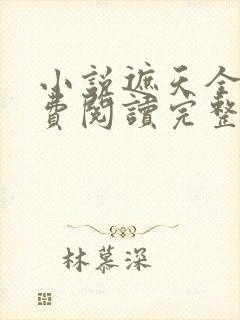 小説遮天全
費閱讀完整
林慕深